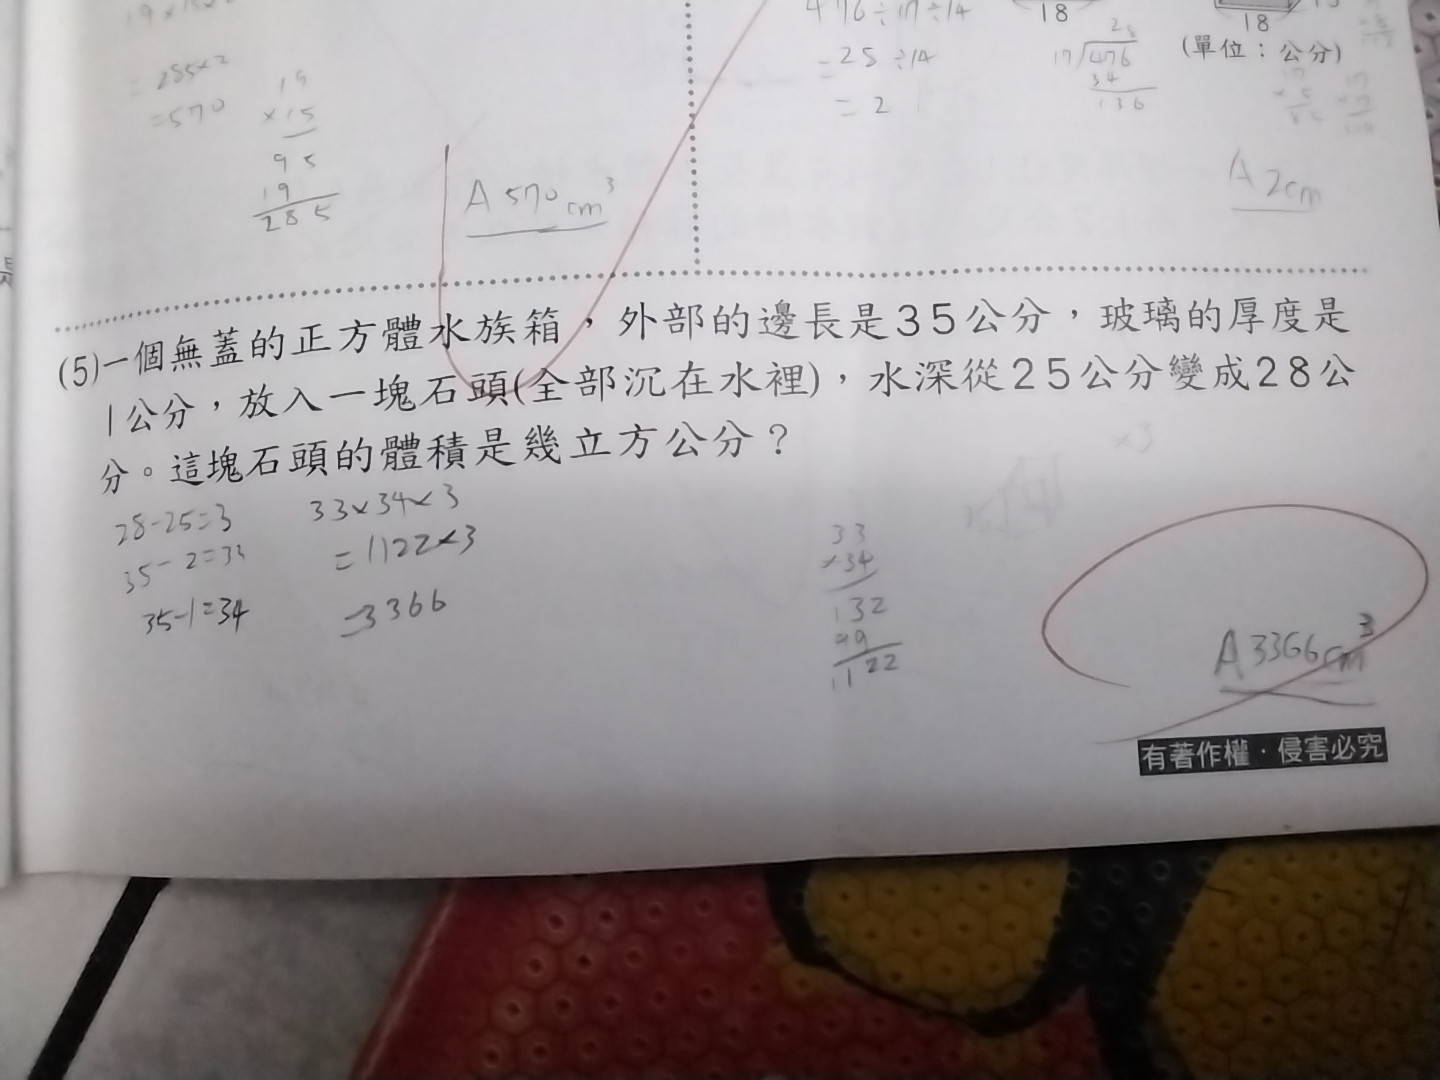 = 285×2
= 570
19
×15
95
19
285
A 570 cm³
476÷17÷14
= 28 ÷14
= 2
28
17 476
34
136
18
18
(單位：公分)
A 2cm
(5)一個無蓋的正方體水族箱，外部的邊長是35公分，玻璃的厚度是
1公分，放入一塊石頭(全部沉在水裡)，水深從25公分變成28公
分。這塊石頭的體積是幾立方公分？
28-25=3
35-2=33
35-1=34
33×34×3
=1122×3
=3366
33
×34
132
99
1122
A 3366cm³
有著作權·侵害必究